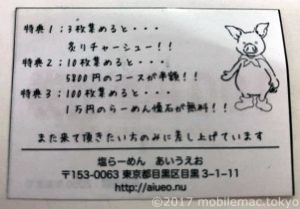 特典1：3枚集めると・・・
炙りチャーシュー！！
特典2：10枚集めると・・・
5800円のコースが半額！！
特典3：100枚集めると・・・
1万円のらーめん懐石が無料！！
また来て頂きたい方のみに差し上げています
塩らーめん あいうえお
〒153-0063 東京都目黒区目黒 3-1-11
http://aiueo.nu
©2017 mobilemac.tokyo